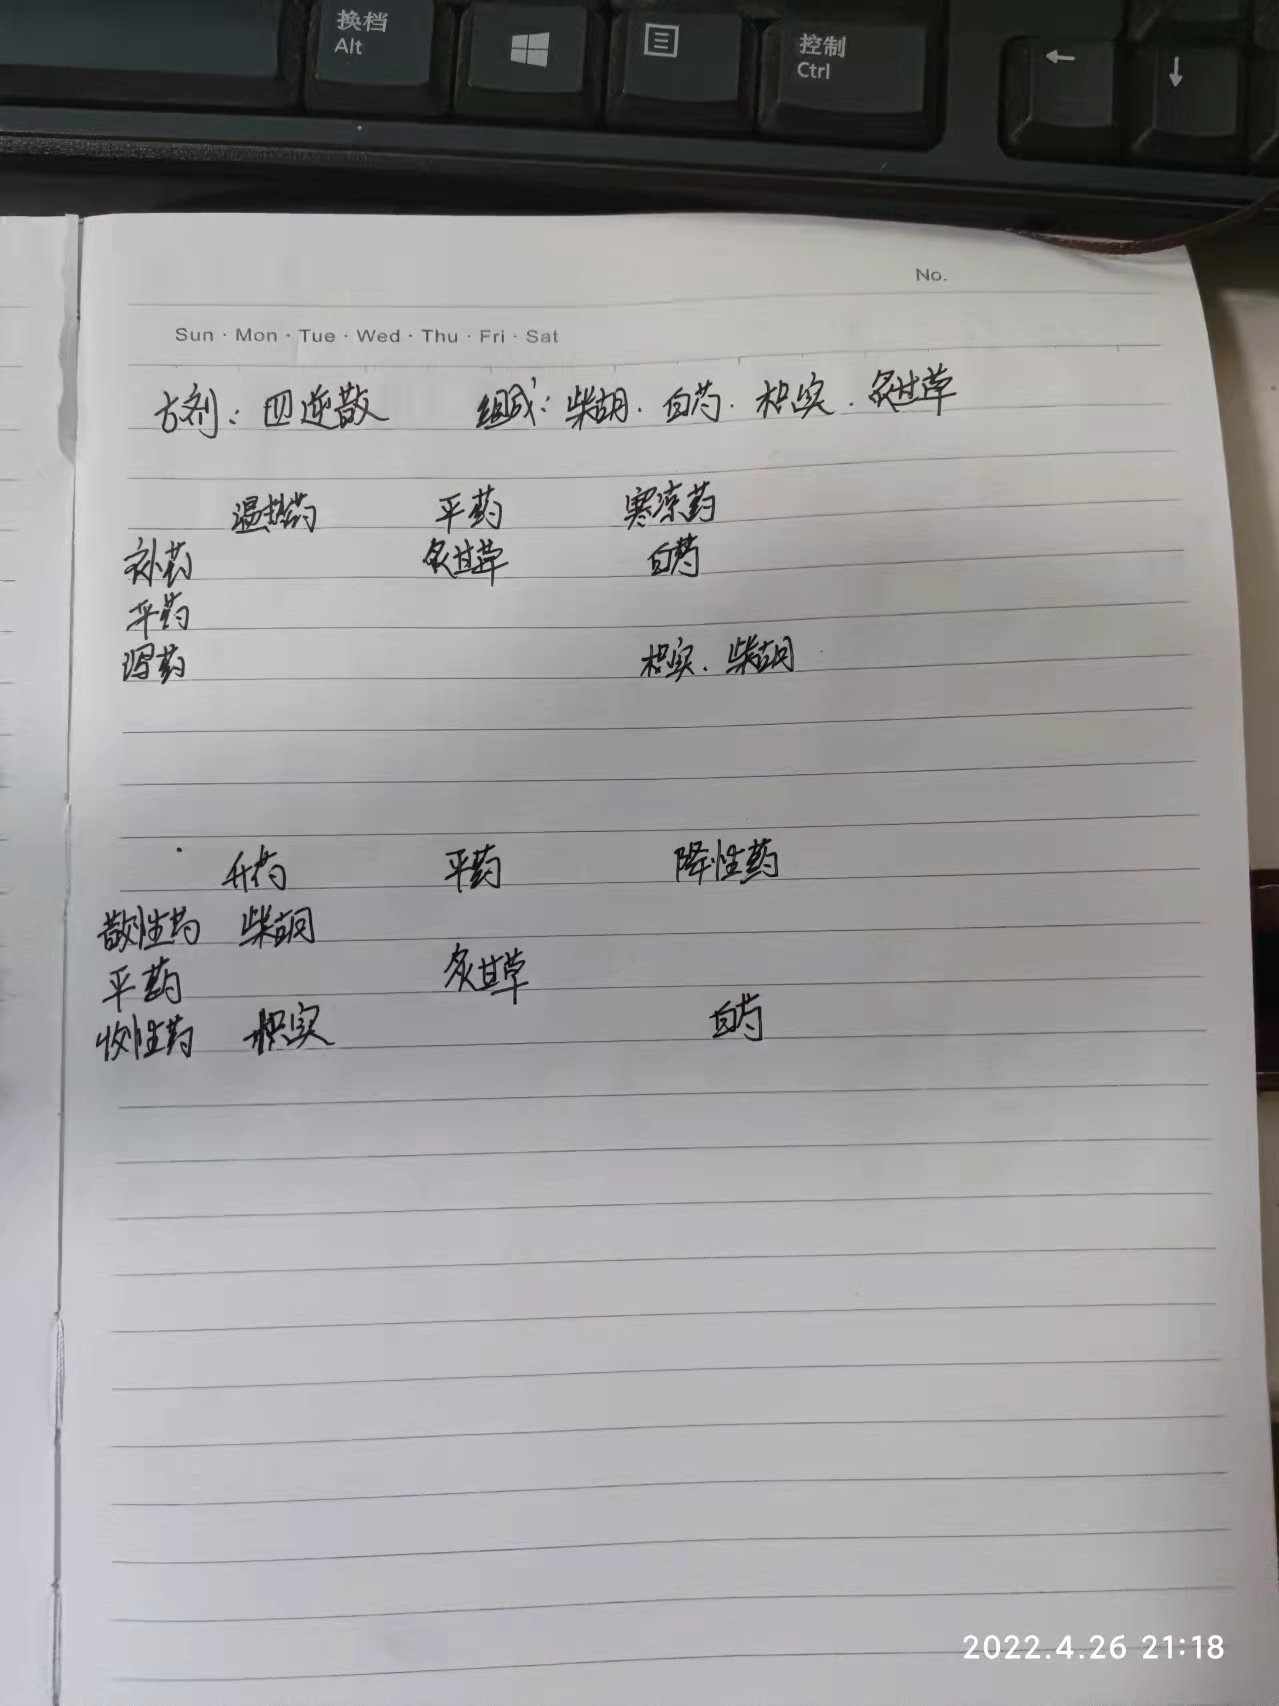 换档
Alt
控制
Ctrl
No.
Sun · Mon · Tue · Wed · Thu · Fri · Sat
方剂：四逆散 组成：柴胡．白芍．枳实．炙甘草
温热药 平药 寒凉药
补药 炙甘草 白芍
平药
泻药 枳实．柴胡
升药 平药 降性药
散性药 柴胡
平药 炙甘草
收性药 枳实 白芍
2022.4.26 21:18